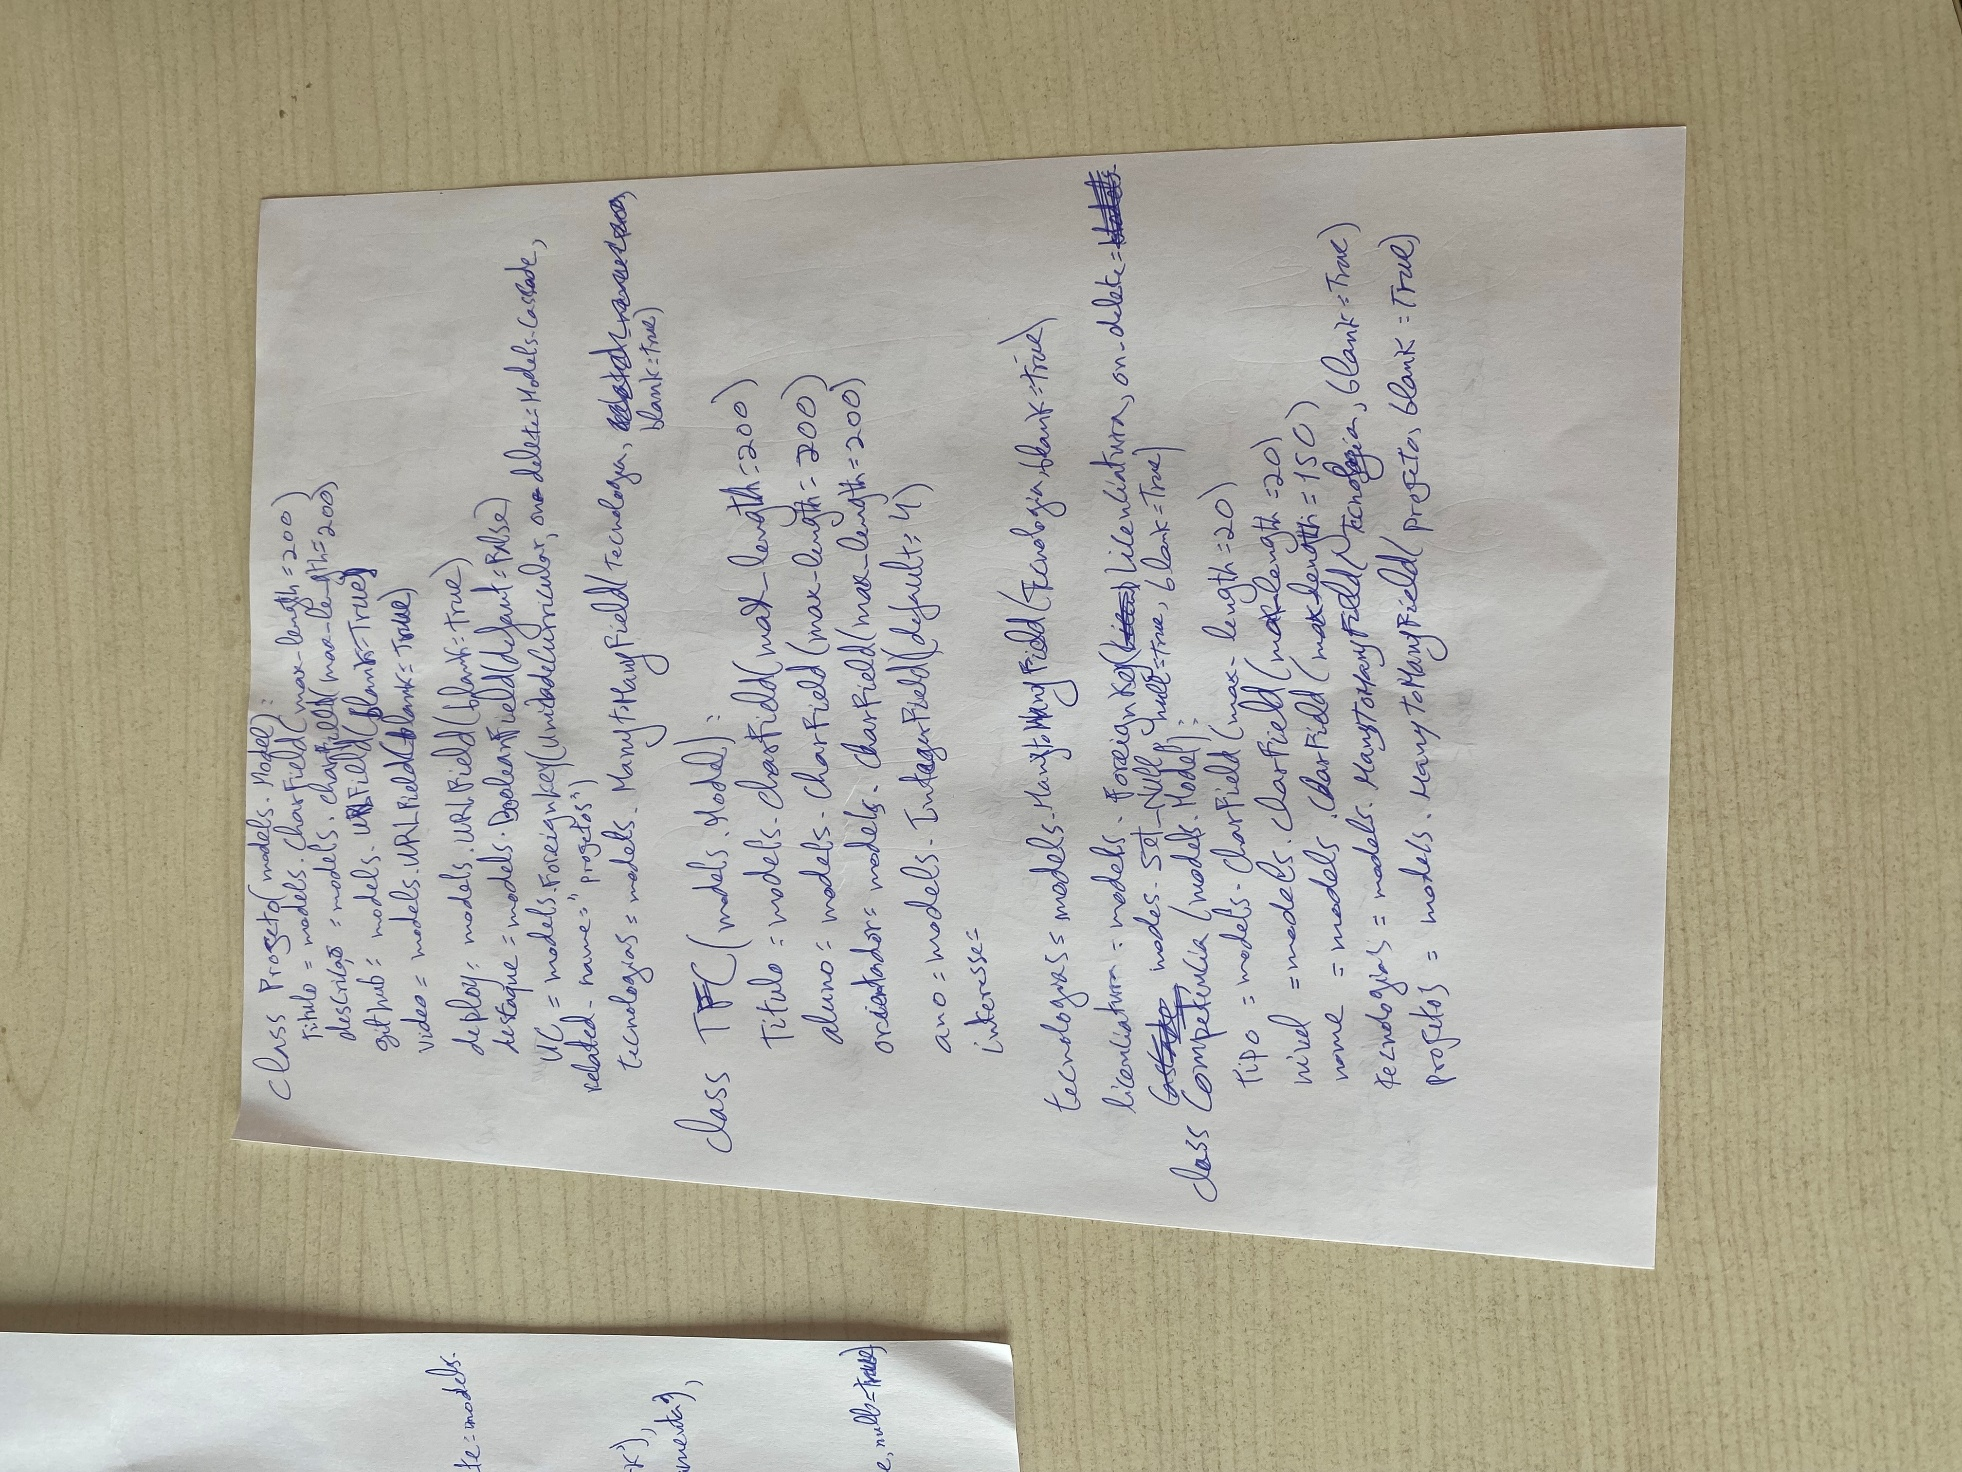 class Progeto(models.Model):
Titulo = models.CharField(max-length=200)
descrição = models.charField(max-length=200)
github = models.URLField(blank=True)
Video = models.URLField(blank=True)
deploy = models.URLField(blank=True)
destaque = models.BooleanField(defaut=False)
UC = models.ForeignKey(UnidadeCurricular, on-delete=Models.Cascade,
related-name="progetos")
tecnologias = models.ManytoManyField(Tecnologia,
blank=True)
class TFC(models.Model):
Titulo = models.CharField(max-length=200)
aluno = models.CharField(max-length=200)
orientador= models.CharField(max-length=200)
ano = models.IntegerField(default=4)
interesse=
tecnologias = models.ManytoManyField(Tecnologia, blank=True)
licenciatura = models.ForeignKey(Licenciatura, on-delete=
modes.Set-Null, null=True, blank=True)
class Competencia(models.Model):
Tipo = models.CharField(max-length=20)
nivel = models.CharField(max-length=20)
nome = models.CharField(max-length=150)
tecnologias = models.ManyToManyField(Tecnologia, blank=True)
progetos = models.ManyToManyField(progeto, blank=True)
te=models.
-k'),
e, null=True)